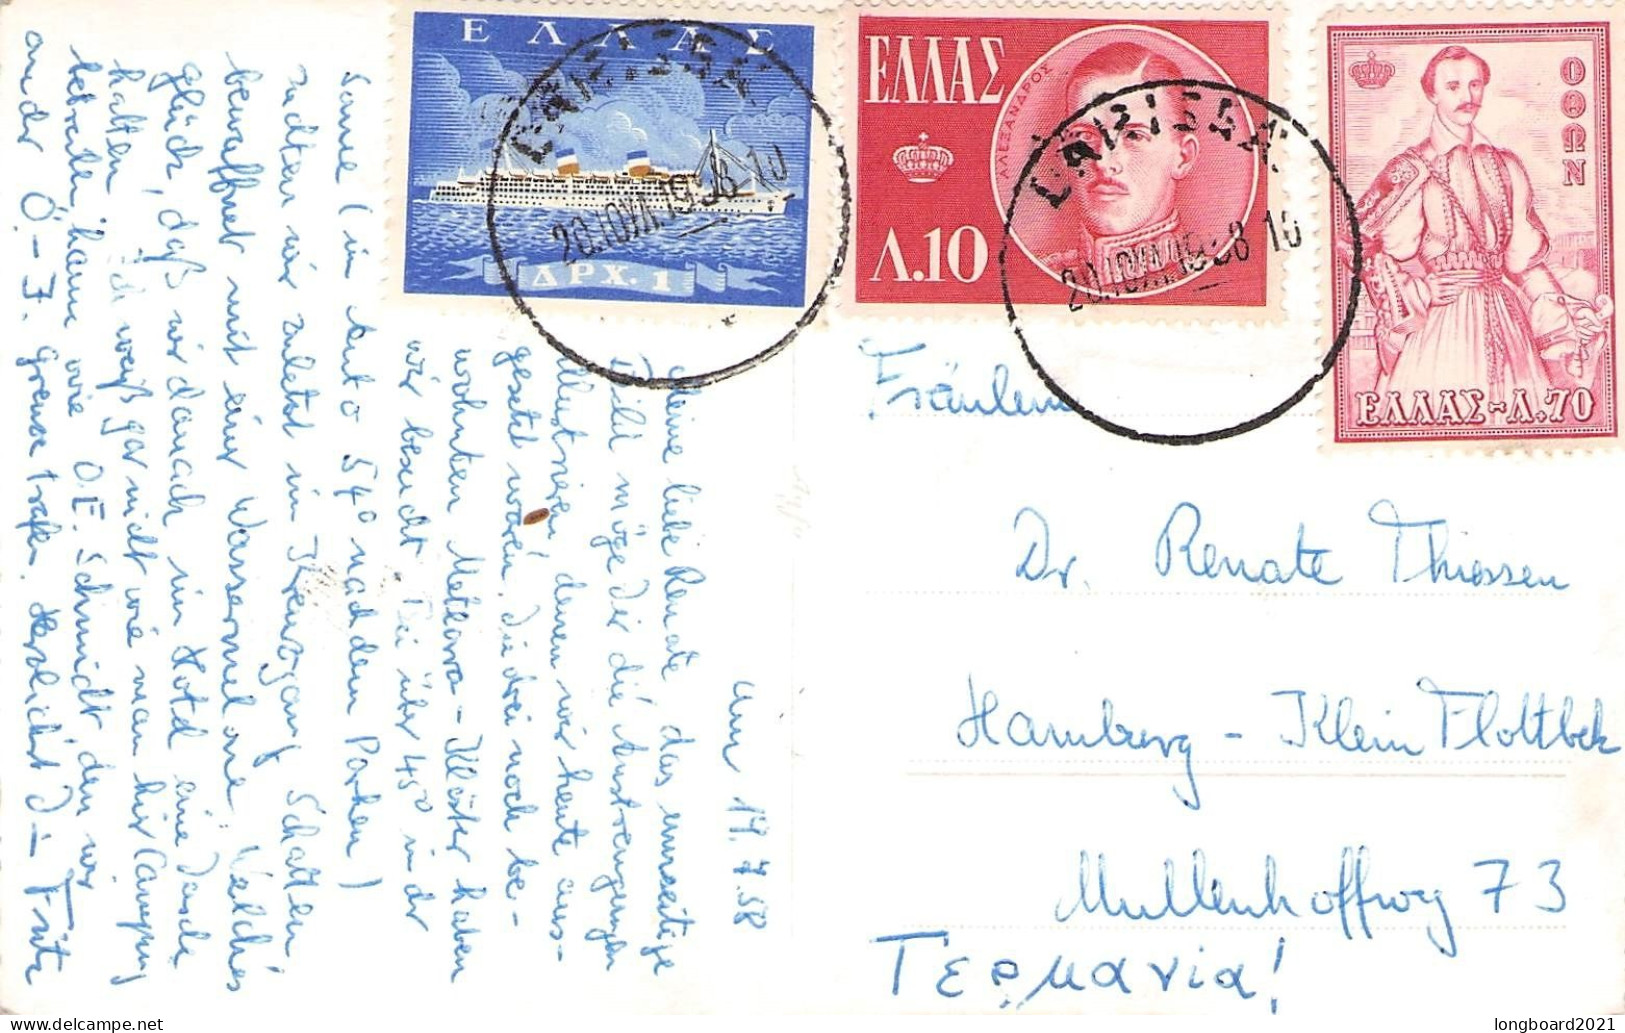 ΕΛΛΑΣ
ΔΡΧ. 1
LARISSA
20.ΙΟΥΛ.1958 10
ΕΛΛΑΣ
ΑΛΕΞΑΝΔΡΟΣ
Λ.10
LARISSA
20.ΙΟΥΛ.1958 10
ΟΘΩΝ
ΕΛΛΑΣ-Λ.70
17.7.58
Meine liebe Renate, das umseitige
Bild möge Dir die Anstrengungen
illustrieren, denen wir heute aus-
gesetzt waren, die drei noch be-
wohnten Meteora-Klöster haben
wir besucht. Bei über 45° in der
Sonne (im Auto 54° nach dem Parken)
suchten wir zuletzt im Kreuzgang Schatten,
bewaffnet mit einer Wassermelone. Welches
Glück, daß wir danach im Hotel eine Dusche
hatten, ich weiß gar nicht wie man hier Camping
betreiben kann wie O.E. Schmidt, den wir
an der Ö.-J. Grenze trafen. Herzlichst Dein Fritz
Fräulein
Dr. Renate Thiessen
Hamburg - Klein Flottbek
Müllenhoffweg 73
Γερμανια!
longboard2021